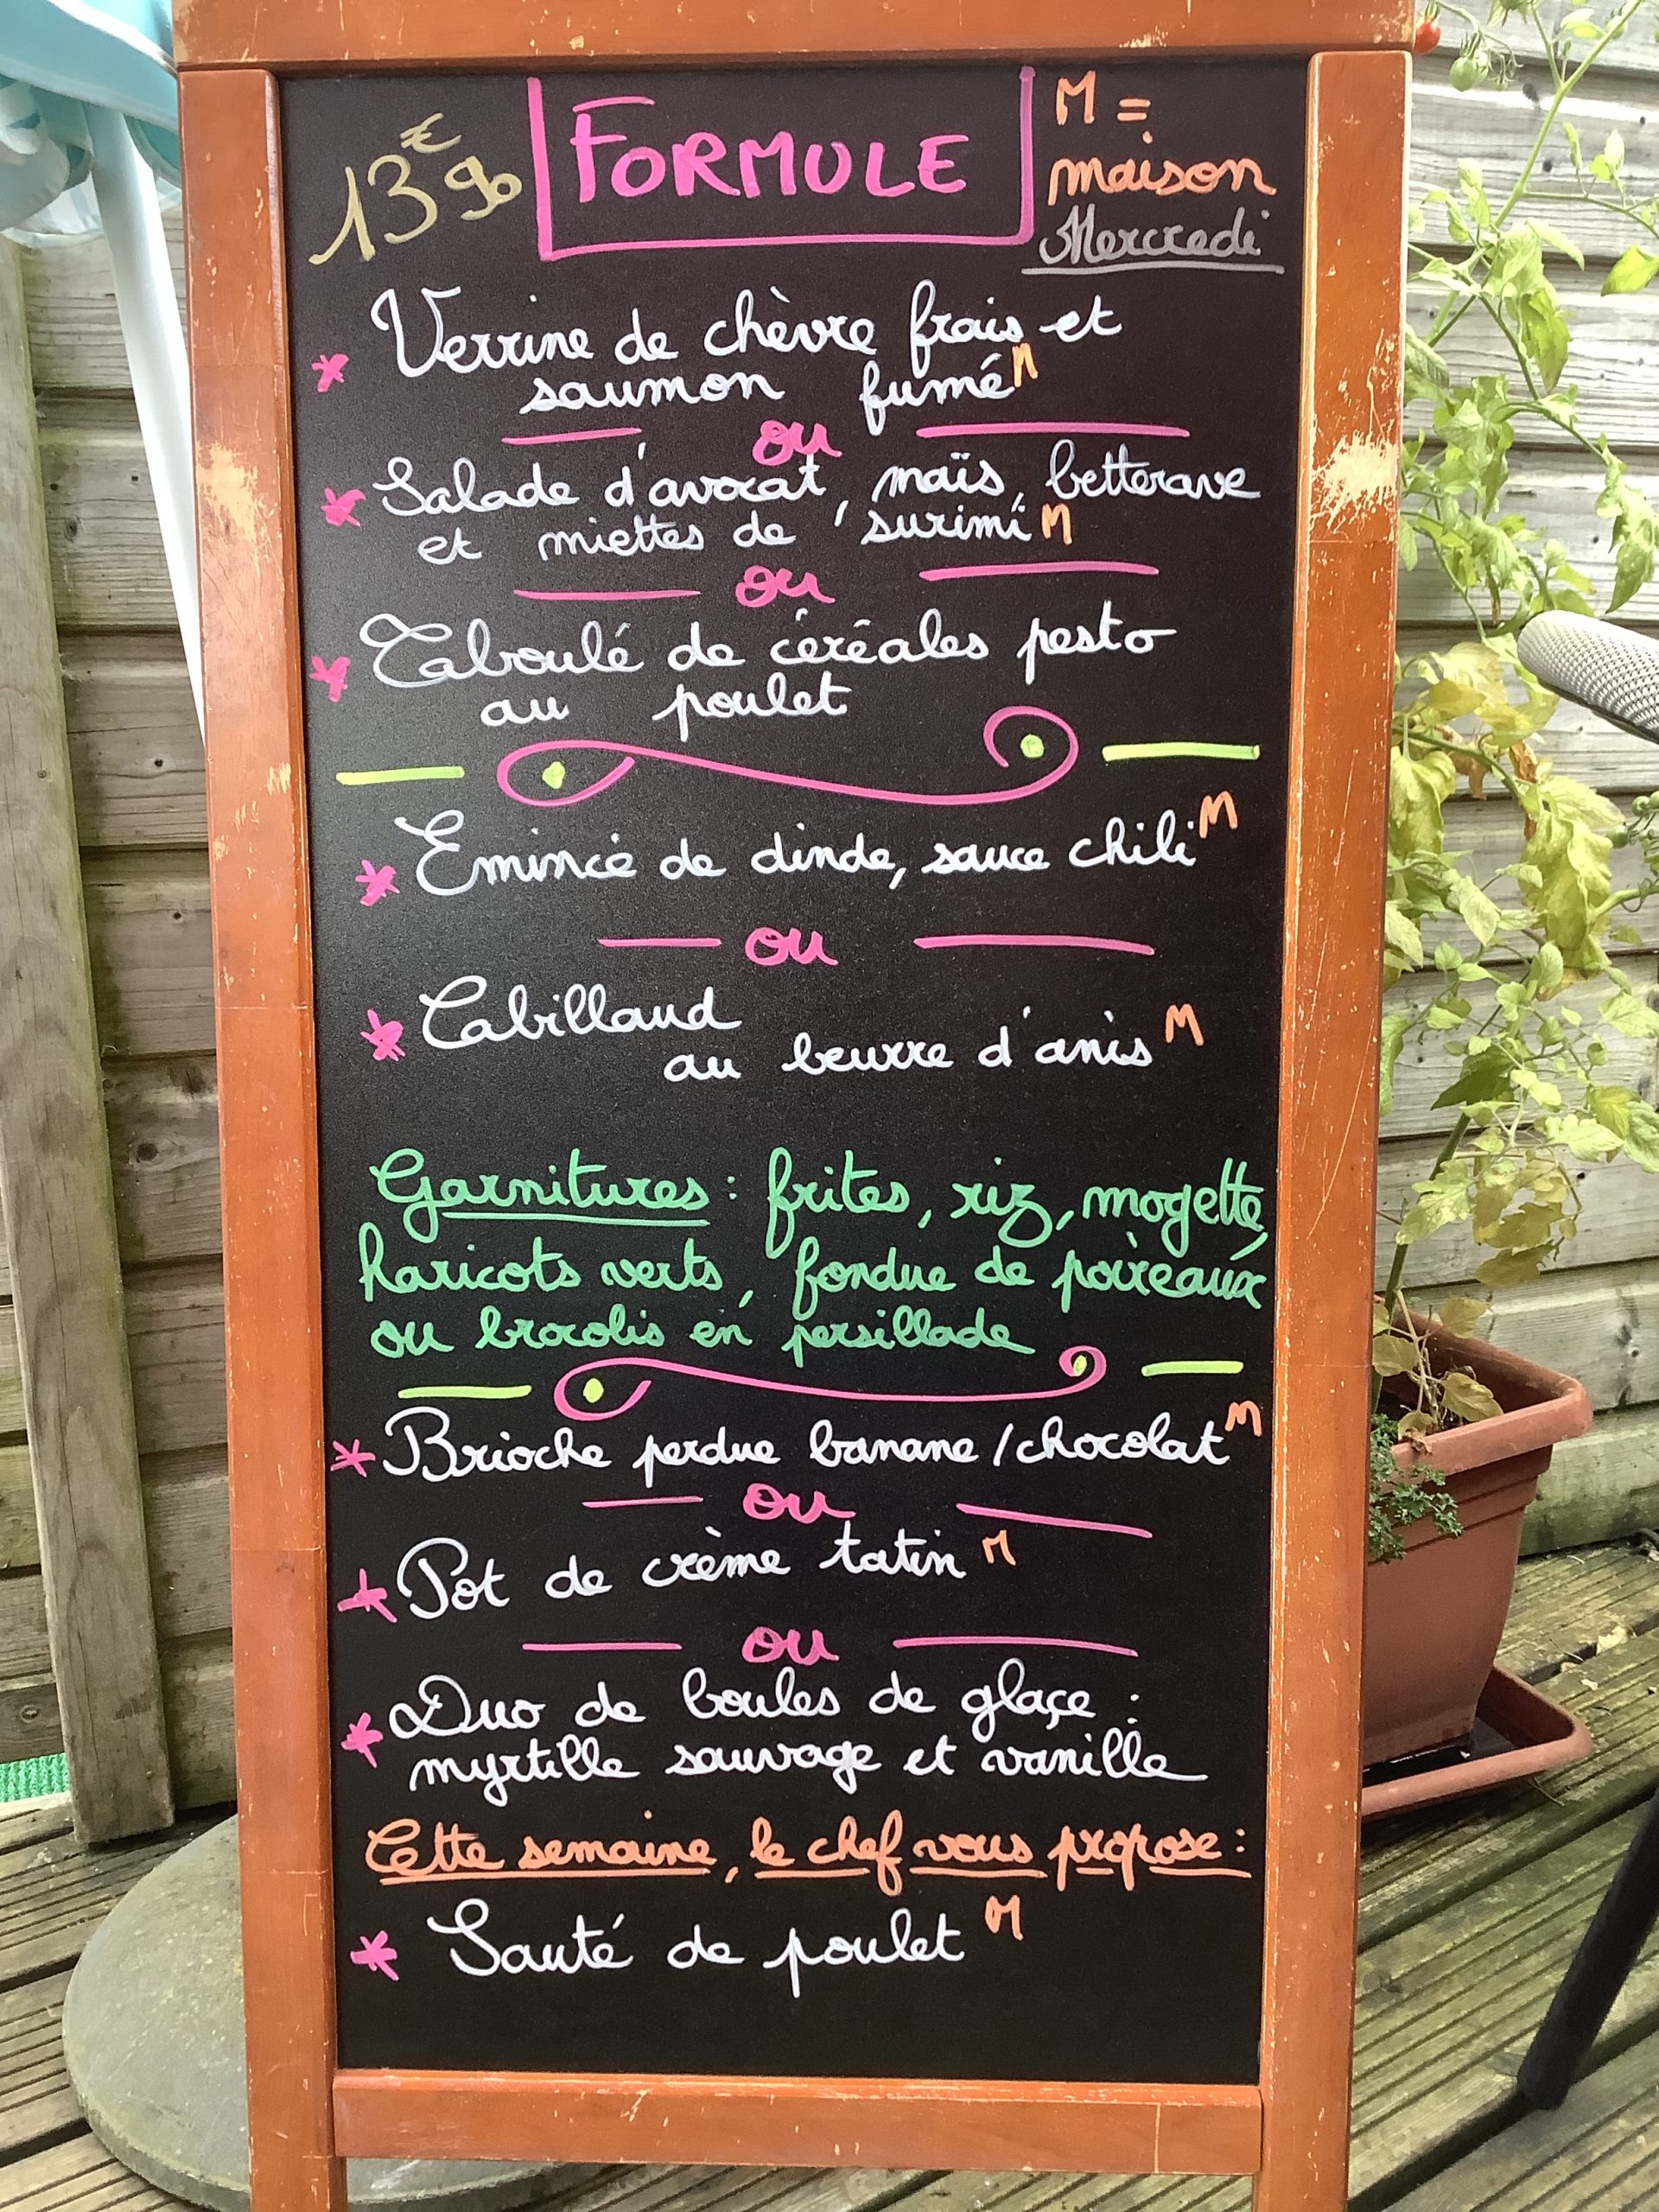 13€90 FORMULE M =
maison
Mercredi
* Verrine de chèvre frais et
saumon fumé M
ou
* Salade d'avocat, maïs, betterave
et miettes de surimi M
ou
* Taboulé de céréales pesto
au poulet
* Emincé de dinde, sauce chili M
ou
* Cabillaud
au beurre d'anis M
Garnitures : frites, riz, mogette,
haricots verts, fondue de poireaux
ou brocolis en persillade
* Brioche perdue banane/chocolat M
ou
* Pot de crème tatin M
ou
* Duo de boules de glaçe :
myrtille sauvage et vanille
Cette semaine, le chef vous propose :
* Sauté de poulet M